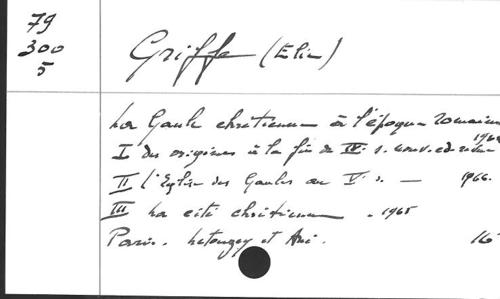 79
300
5
Griffe (Elie)
La Gaule chrétienne à l'époque romaine
I des origines à la fin du IV. s. nouv. ed.
II l'Eglise des Gaules au V. s. — 1966.
III La cité chrétienne - 1965
Paris. Letouzey et Ané. 16